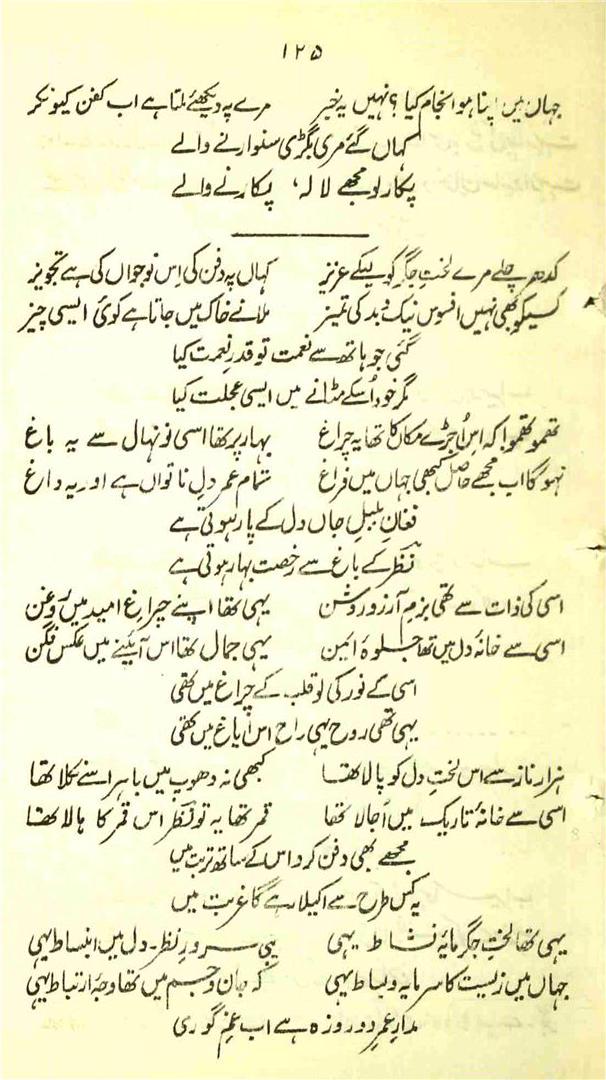 ۱۲۵
جہاں میں اپنا ہوا انجام کیا؟ نہیں یہ خبر مرے پہ دیکھئے ملتا ہے اب کفن کیونکر
کہاں گئے مری بگڑی سنوارنے والے
پکار لو مجھے لالہ، پکارنے والے
کدھر چلے مرے لختِ جگر کو لیکے عزیز کہاں پہ دفن کی اِس نوجواں کی ہے تجویز
کسیکو بھی نہیں افسوس نیک و بد کی تمیز ملانے خاک میں جاتا ہے کوئی ایسی چیز
گئی جو ہاتھ سے نعمت تو قدرِ نعمت کیا
مگر خود اُسکے مٹانے میں ایسی عجلت کیا
تھمو تھمو! کہ اِس اُجڑے مکاں کا تھا یہ چراغ بہار پر تھا اسی نونہال سے یہ باغ
نہوگا اب مجھے حاصل کبھی جہاں میں فراغ تمام عمر دلِ ناتواں ہے اور یہ داغ
فغانِ بلبلِ جاں دل کے پار ہوتی ہے
نظر کے باغ سے رخصت بہار ہوتی ہے
اسی کی ذات سے تھی بزمِ آرزو روشن یہی تھا اپنے چراغِ امید میں روغن
اسی سے خانۂ دل میں تھا جلوۂ ایمن یہی جمال تھا اس آئینے میں عکس فگن
اسی کے نور کی لو قلب کے چراغ میں تھی
یہی تھی روح یہی راح اس ایاغ میں تھی
ہزار ناز سے اس لختِ دل کو پالا تھا کبھی نہ دھوپ میں باہر اسے نکالا تھا
اسی سے خانۂ تاریک میں اُجالا تھا قمر تھا یہ تو نظر اس قمر کا ہالا تھا
مجھے بھی دفن کر دو اس کے ساتھ تربت میں
یہ کس طرح سے اکیلا رہے گا غربت میں
یہی تھا لختِ جگر مایۂ نشاط یہی یہی سرورِ نظر۔ دل میں انبساط یہی
جہاں میں زیست کا سرمایہ و بساط یہی کہ جان و جسم میں تھا وجۂ ارتباط یہی
مدارِ عمرِ دو روزہ ہے اب غمِ گوری